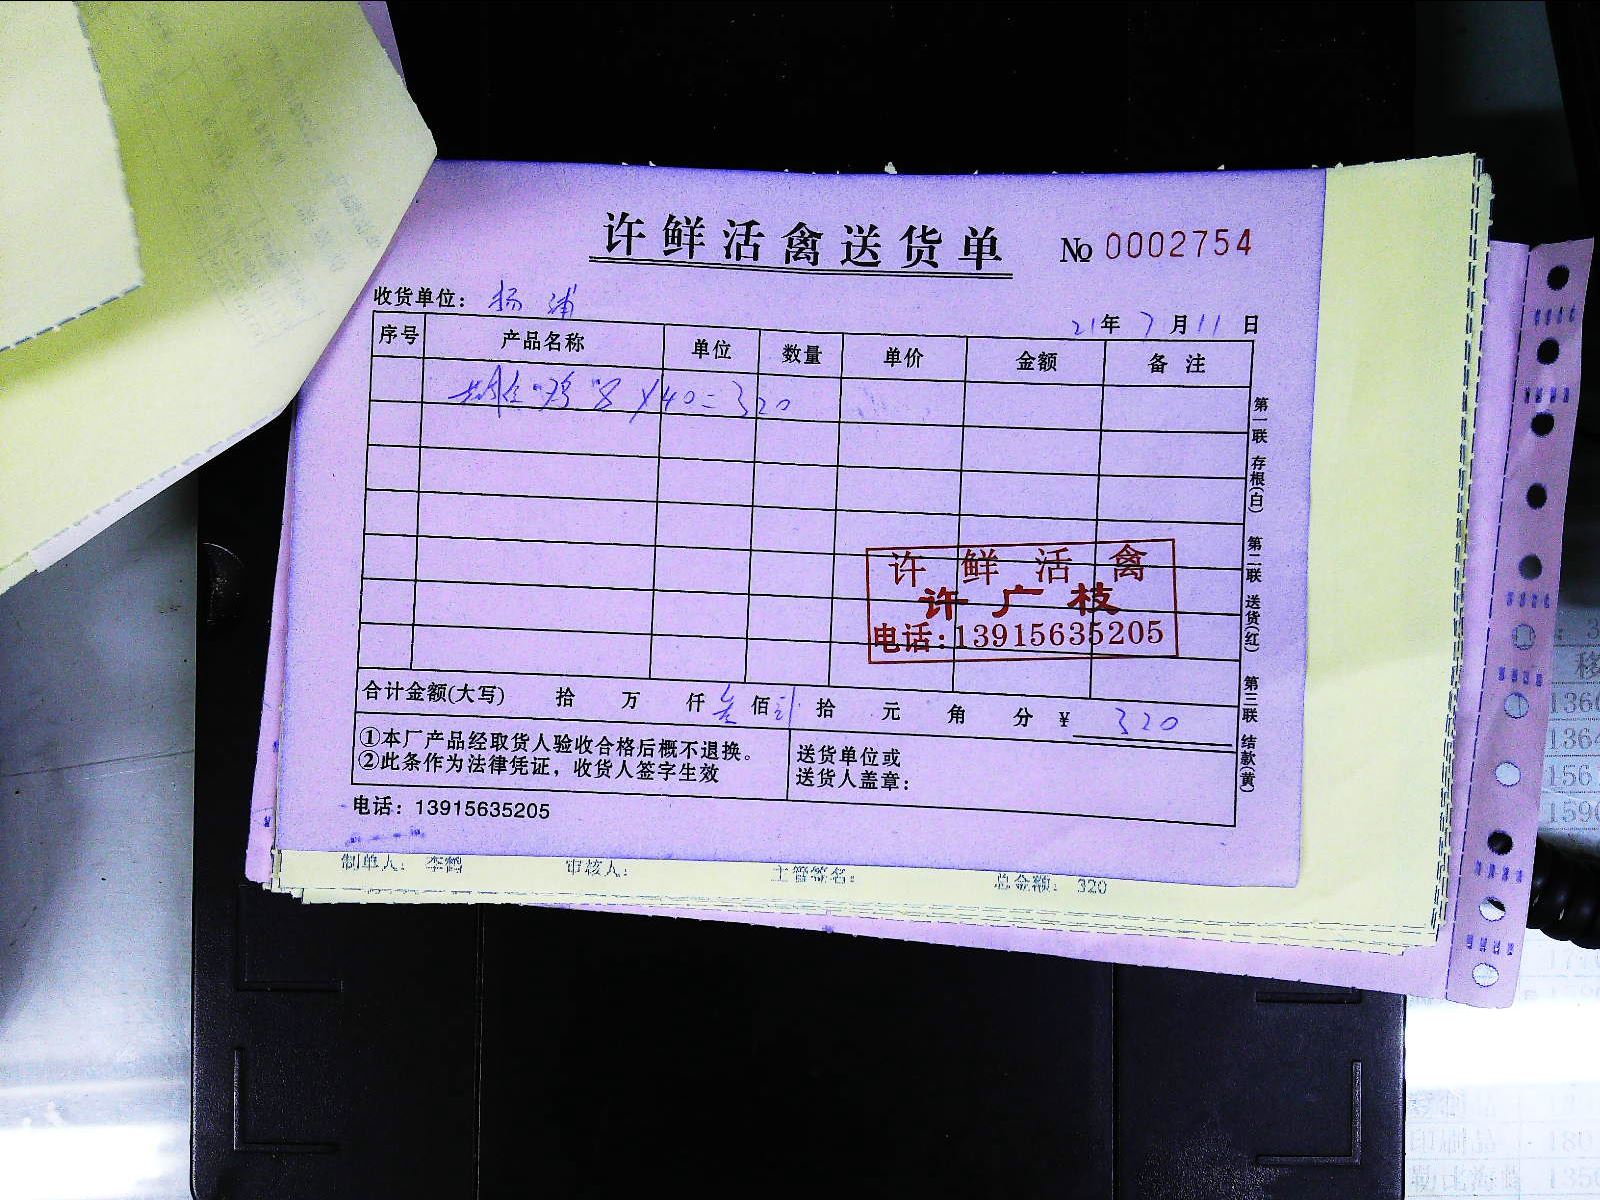 许鲜活禽送货单
№ 0002754
收货单位: 杨浦
21年7月11日
序号 产品名称 单位 数量 单价 金额 备注
鸡 8 × 40 = 320
第一联 存根(白) 第二联 送货(红) 第三联 结款(黄)
许鲜活禽
许广枝
电话:13915635205
合计金额(大写) 拾 万 仟 叁 佰 贰 拾 元 角 分 ¥ 320
①本厂产品经取货人验收合格后概不退换。
②此条作为法律凭证，收货人签字生效
送货单位或
送货人盖章:
电话: 13915635205
制单人: 李鹤 审核人: 主管签名: 总金额: 320